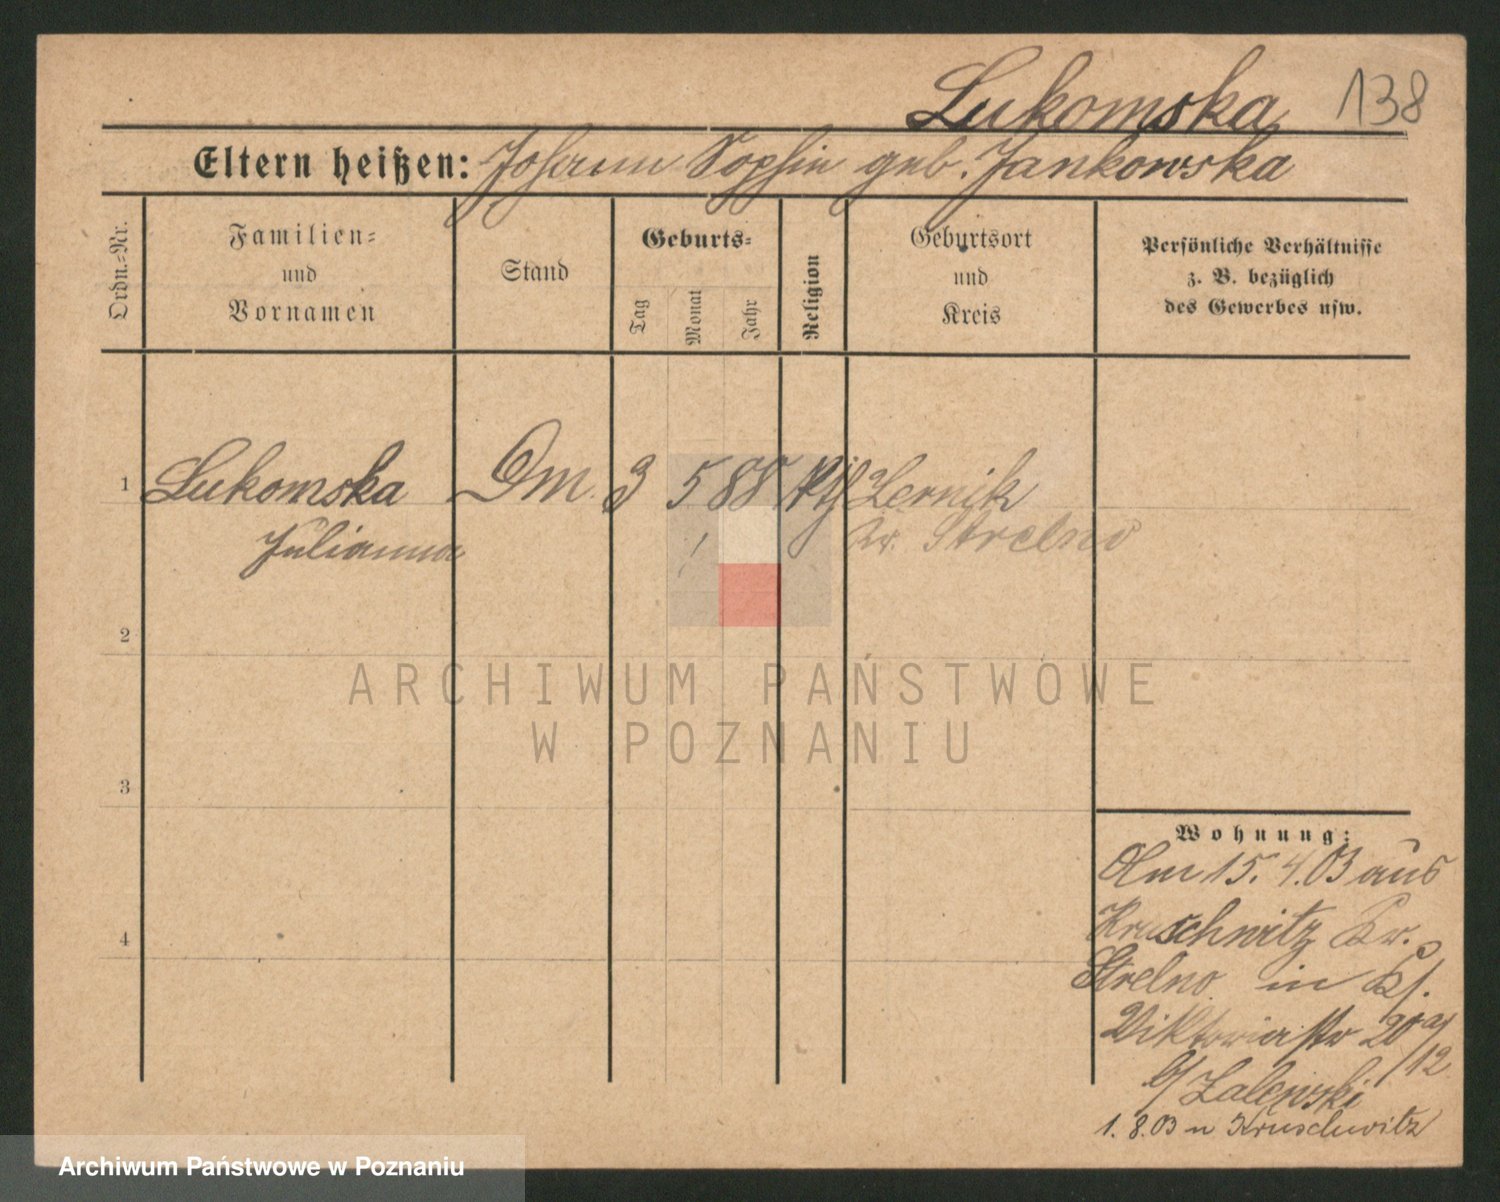 Lukomska 138
Eltern heißen: Johann Sophie geb. Jankowska
Ordn.=Nr.
Familien=
und
Vornamen
Stand
Geburts=
Tag
Monat
Jahr
Religion
Geburtsort
und
Kreis
Persönliche Verhältnisse
z. B. bezüglich
des Gewerbes usw.
1 Lukomska Dm. 3 5 88 kth Zernik
Julianna Kr. Strelno
2
3
4
ARCHIWUM PAŃSTWOWE
W POZNANIU
Wohnung:
Am 15. 4. 03 aus
Kruschwitz Kr.
Strelno in
Viktoriastr 20
/12
b/ Zalewski
1. 8. 03 n Kruschwitz
Archiwum Państwowe w Poznaniu